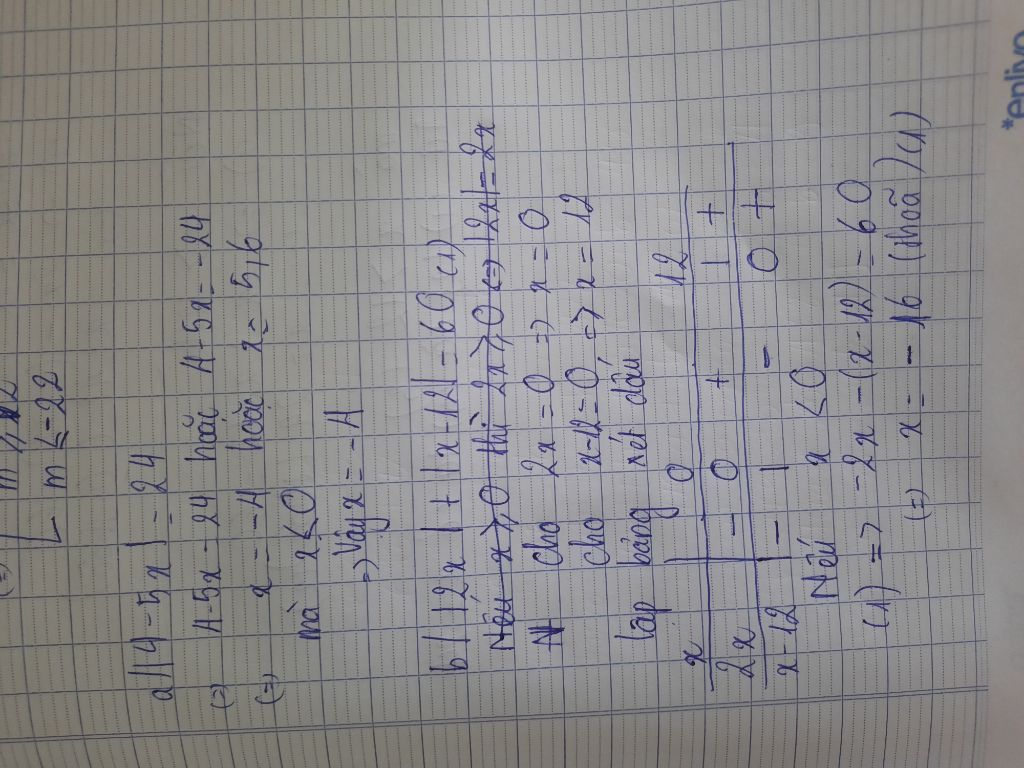 (=) [ m ≥ 22
m ≤ -22
a) |4-5x| = 24
(=) 4-5x = 24 hoặc 4-5x = -24
(=) x = -4 hoặc x = 5,6
mà x ≤ 0
=) Vậy x = -4
b) |2x| + |x-12| = 60 (1)
Nếu x ≥ 0 thì 2x ≥ 0 (=) |2x| = 2x
Cho 2x = 0 => x = 0
Cho x-12 = 0 => x = 12
lập bảng xét dấu
x | 0 12
2x | - 0 + | +
x-12 | - | - 0 +
Nếu x < 0
(1) => -2x - (x-12) = 60
(=) x = -16 (thoã) (1)
*enlivo